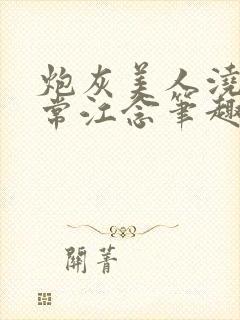 炮灰美人澆
常江念筆趣
關菁